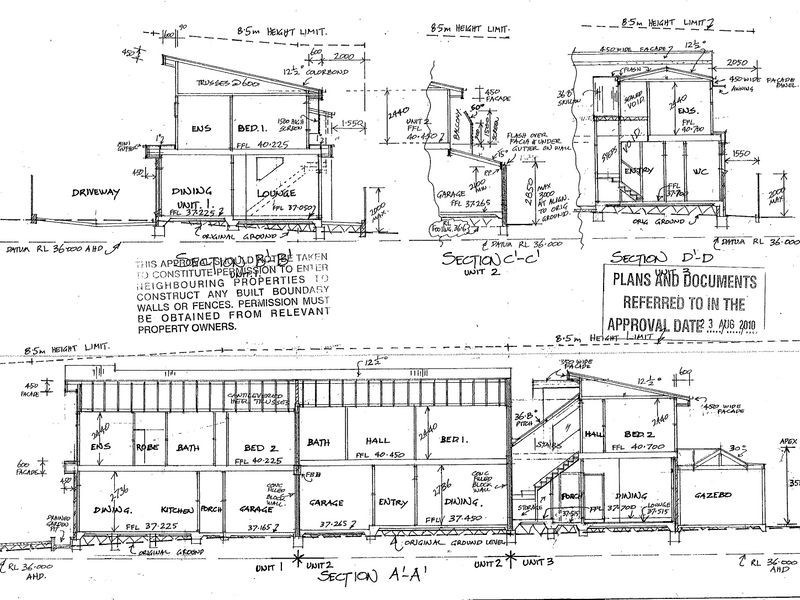 8·5m HEIGHT LIMIT.
600
90
450
600
2000
12½° COLORBOND
TRUSSES @ 600
1500 HIGH
SCREEN
1·550
ENS
BED.1.
FFL 40·225
450
DRIVEWAY
DINING
UNIT. 1
FFL 37·225
LOUNGE
FFL 37·050
2000
MAX.
ORIGINAL GROUND
DATUM RL 36·000 AHD.
SECTION B'-B'
UNIT 1
THIS APPROVAL SHOULD NOT BE TAKEN
TO CONSTITUTE PERMISSION TO ENTER
NEIGHBOURING PROPERTIES TO
CONSTRUCT ANY BUILT BOUNDARY
WALLS OR FENCES. PERMISSION MUST
BE OBTAINED FROM RELEVANT
PROPERTY OWNERS.
8·5m HEIGHT LIMIT.
450
FACADE
2440
UNIT 2
FFL
40·450
BALCONY.
50°
SCREEN
FLASH OVER
FACIA & UNDER
GUTTER ON WALL
15°
GARAGE
FFL 37·265
2400
MIN.
2850
MAX
3000
AT ALIGN.
TO ORIG
GROUND.
DATUM RL 36·000
SECTION C'-C'
UNIT 2
8·5m HEIGHT LIMIT
450 WIDE FACADE
12½°
2050
FLASH
450 WIDE FACADE
PANEL.
AWNING
36·8°
SKILLION
VOID
2440
ENS.
FFL
40·700
VOID.
STEPS
ENTRY
WC
FFL
37·700
1550
2000
MAX.
ORIG GROUND
DATUM RL 36·000
SECTION D'-D
UNIT 3
PLANS AND DOCUMENTS
REFERRED TO IN THE
APPROVAL DATE 23 AUG 2010
8·5m HEIGHT LIMIT.
8·5m HEIGHT LIMIT
12½°
350 WIDE
FACADE
12½°
600
450
FACADE
CANTILEVERED
HEEL TRUSSES
450 WIDE
FACADE
36·8°
PITCH
2440
ENS
ROBE
BATH
BED 2
FFL 40·225
BATH
HALL
FFL 40·450
2440
BED1.
STAIRS
HALL
BED.2
2440
FFL 40·700
30°
APEX
600
FACADE
450
2736
DINING.
FFL 37·225
KITCHEN
PORCH
GARAGE
37·165
CONC
FILLED
BLOCK
WALL.
GARAGE
37·265
ENTRY
2736
DINING.
FFL 37·450
CONC
FILLED
BLOCK
WALL
STORAGE
PORCH
FFL
DINING
37·700
LOUNGE
37·515
GAZEBO
ORIGINAL GROUND
ORIGINAL GROUND LEVEL
RL 36·000
AHD.
UNIT 1
UNIT 2
UNIT 2
UNIT 3
RL 36·000
AHD
SECTION A'-A'